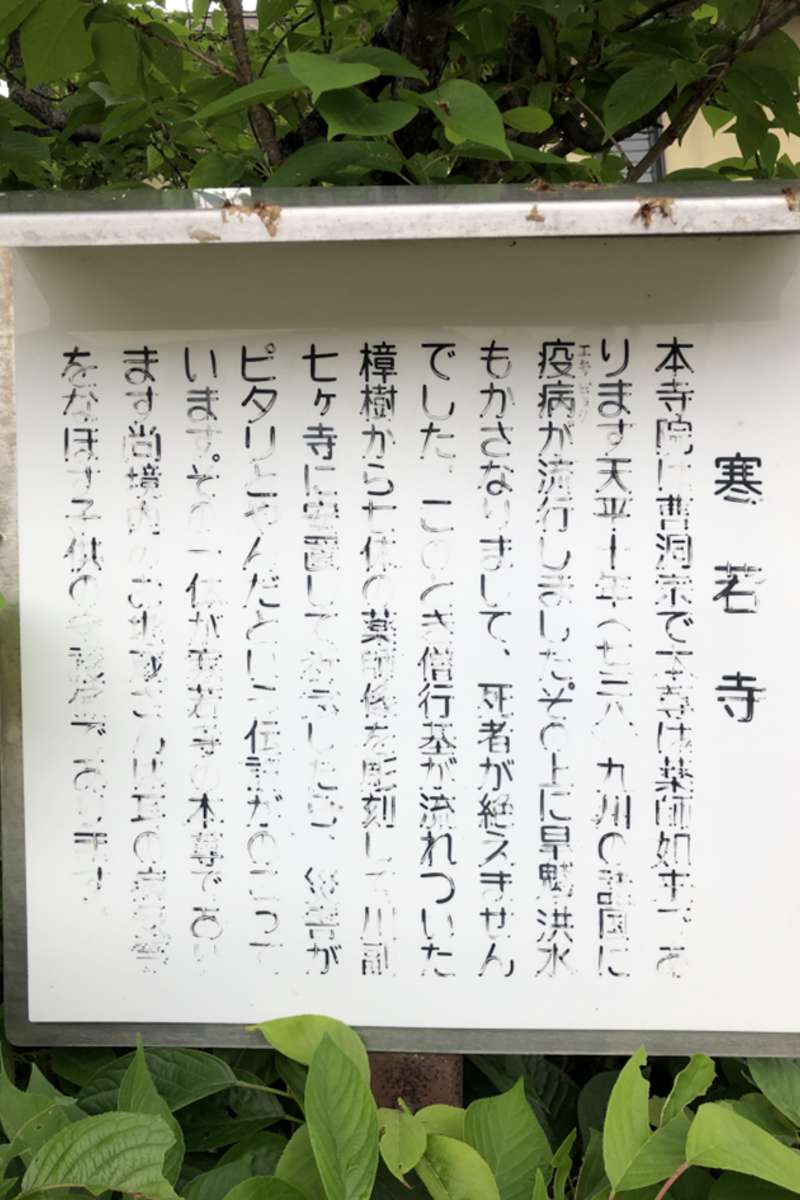 寒若寺
本寺院は曹洞宗で本尊は薬師如来であ
ります天平十年(七三八)九州の諸国に
疫病が流行しましたその上に旱魃洪水
もかさなりまして、死者が絶えません
でした。このとき僧行基が流れついた
樟樹から七体の薬師像を彫刻して川副
七ヶ寺に安置して祈ったら、災害が
ピタリとやんだという伝説がのこって
います。その一体が寒若寺の本尊であり
ます尚境内のお地蔵さんは耳の病気等
をなほす子供の守護尊であります